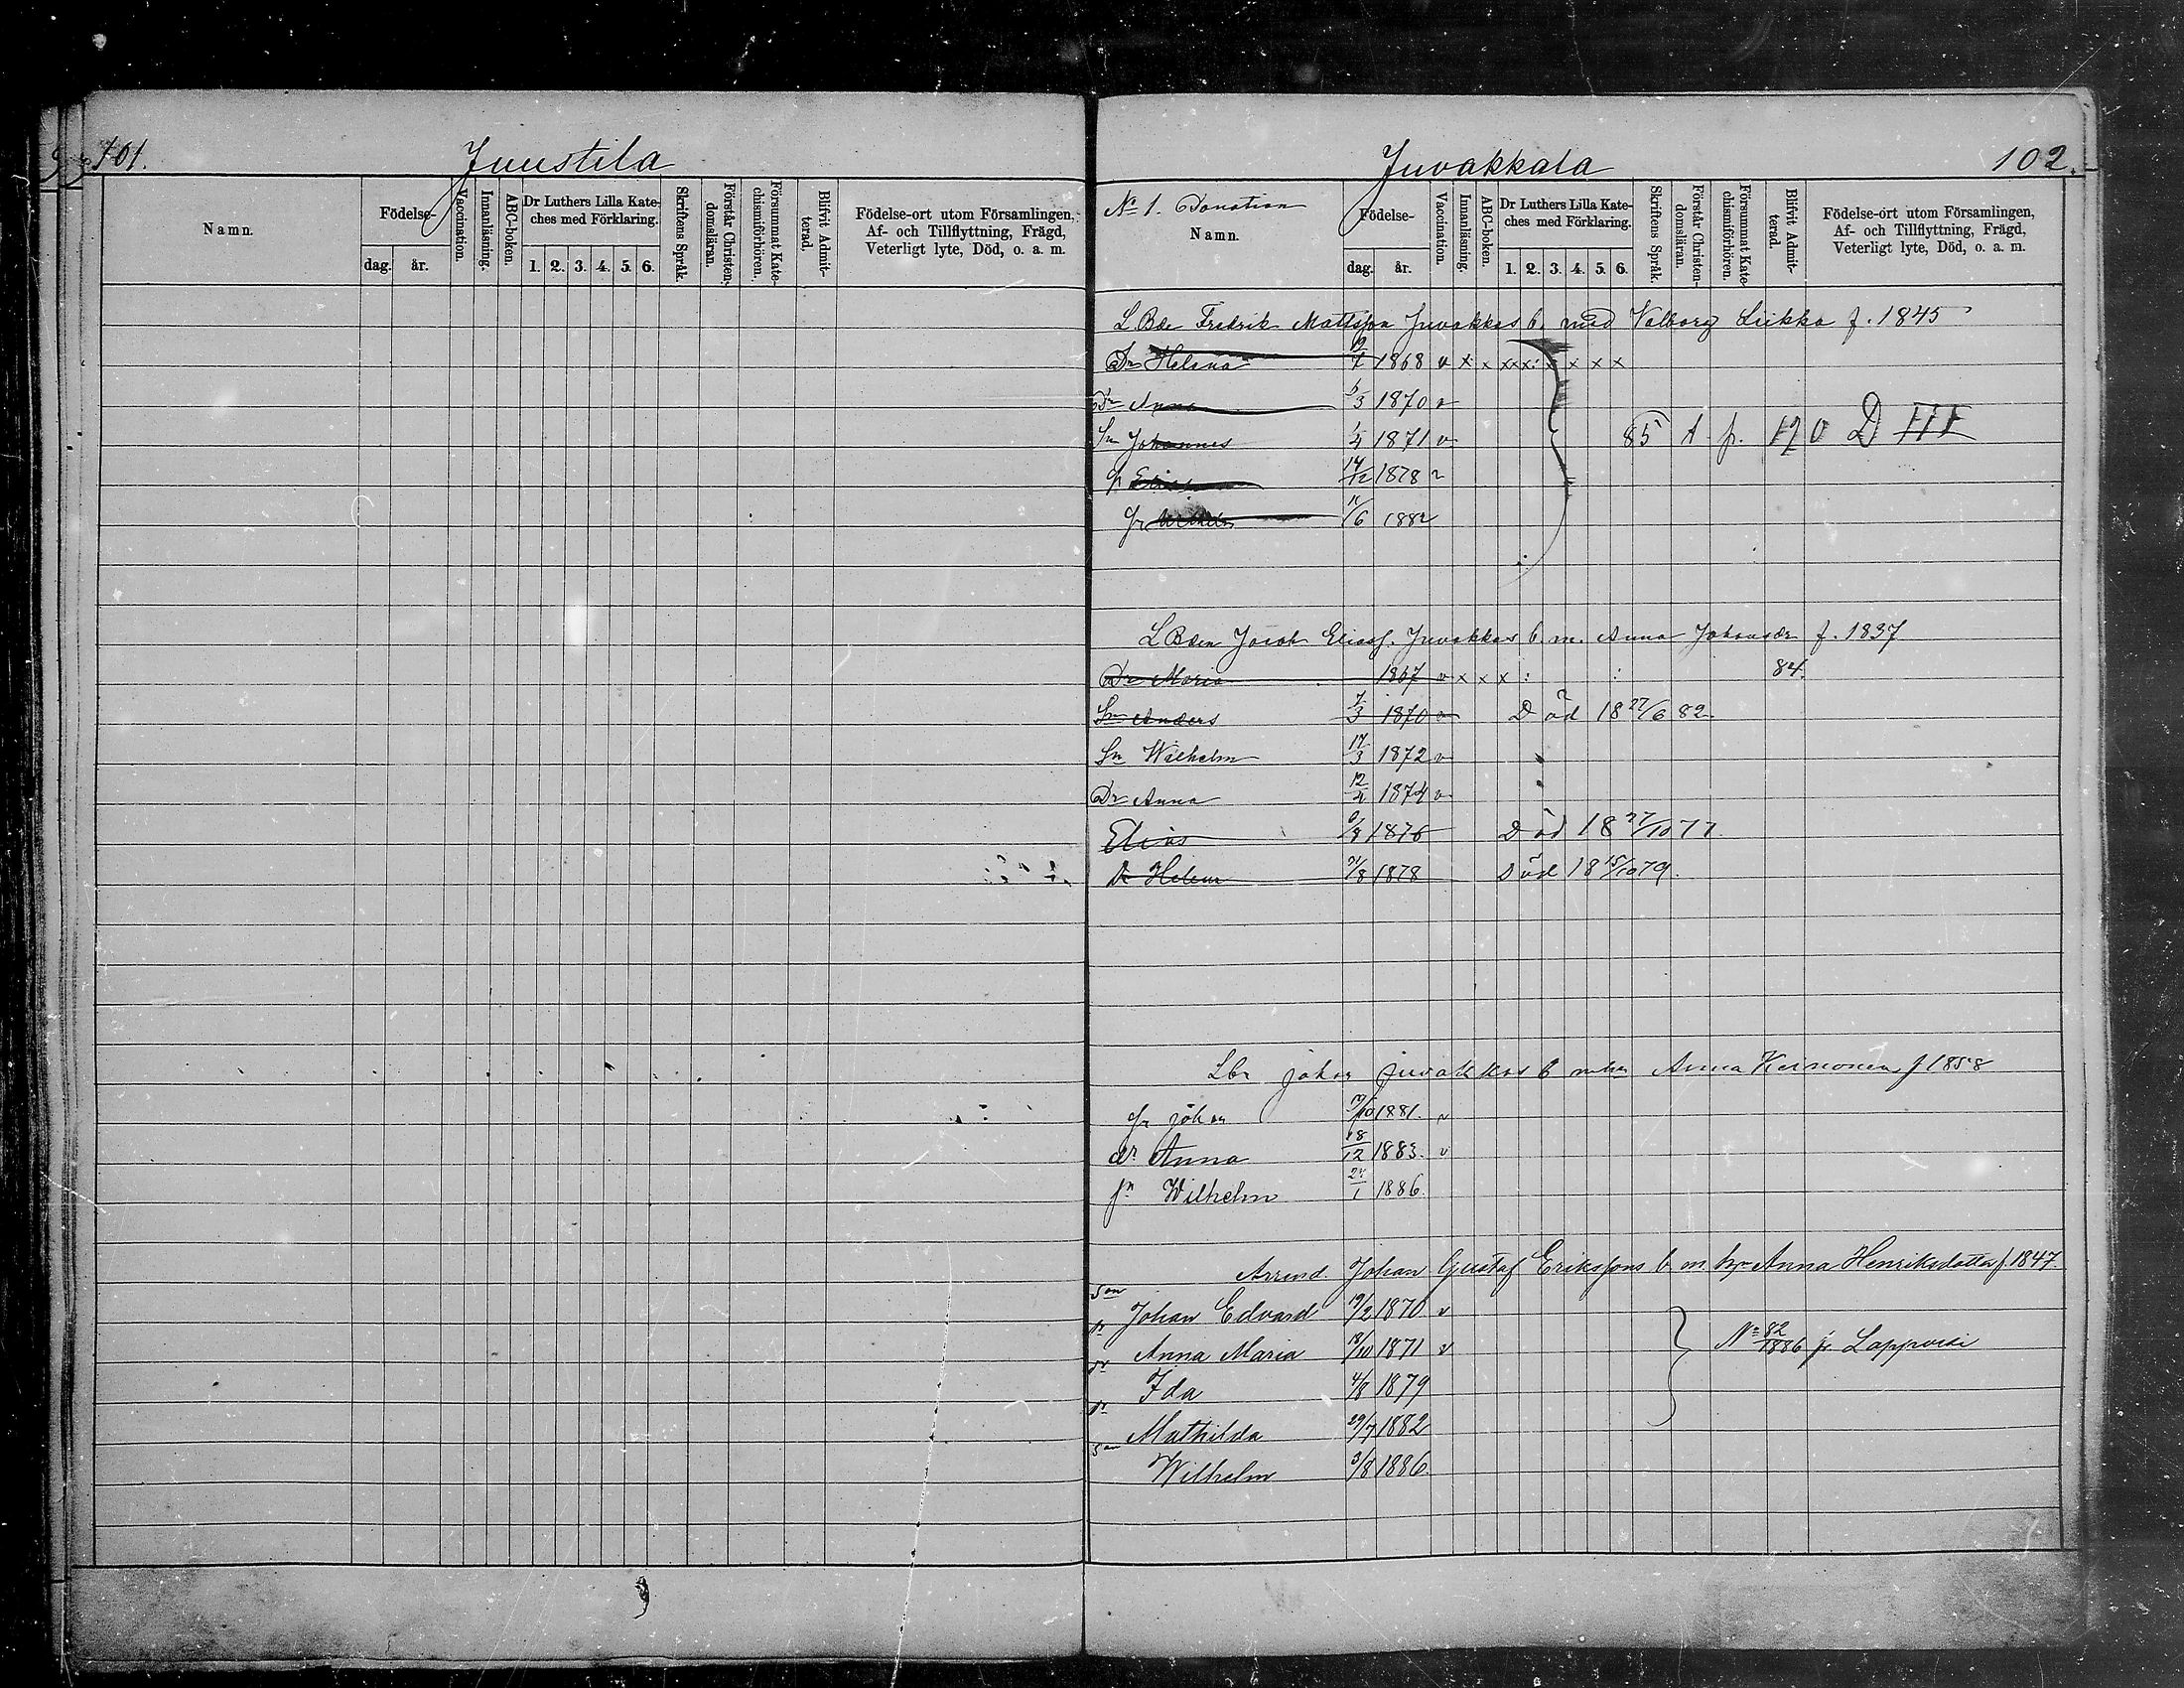 101.
Juustila
Namn.
Födelse-
dag. år.
Vaccination.
Innanläsning.
ABC-boken.
Dr Luthers Lilla Kate-
ches med Förklaring.
1. 2. 3. 4. 5. 6.
Skriftens Språk.
Förstår Christen-
domsläran.
Försummat Kate-
chismiförhören.
Blifvit Admit-
terad.
Födelse-ort utom Församlingen,
Af- och Tillflyttning, Frägd,
Veterligt lyte, Död, o. a. m.
Juvakkala
102.
No 1. Donation
Namn.
Födelse-
dag. år.
Vaccination.
Innanläsning.
ABC-boken.
Dr Luthers Lilla Kate-
ches med Förklaring.
1. 2. 3. 4. 5. 6.
Skriftens Språk.
Förstår Christen-
domsläran.
Försummat Kate-
chismiförhören.
Blifvit Admit-
terad.
Födelse-ort utom Församlingen,
Af- och Tillflyttning, Frägd,
Veterligt lyte, Död, o. a. m.
L Bde Fredrik Mattsson Juvakkas b. med Valborg Liikka f. 1845
Dr Helena 19/7 1868 v x x x x x x x x x
Dr Anna 5/3 1870 v
Sn Johannes 1/4 1871 v 85 A p. 120 D III
Elias 14/12 1878 v
11/6 1882
L Bden Jacob Eliass. Juvakkas b. m. Anna Johansdr f. 1837
Dr Maria 1867 v x x x : : 84.
Sn Anders 7/3 1870 v Död 18 22/6 82
Sn Wilhelm 17/3 1872 v
Dr Anna 12/4 1874 v
Elias 6/8 1876 Död 18 27/10 77
Dr Helena 21/8 1878 Död 18 15/10 79.
Lbr Johan Juvakkas b m hu Anna Keinonen f 1858
Johan 1881. v
dr Anna 18/12 1883. v
sn Wilhelm 24/1 1886.
Arrend. Johan Gustaf Erikssons b m. hu Anna Henriksdotter f. 1847
son Johan Edvard 19/2 1870 v
dr Anna Maria 18/10 1871 v No 82/1886 fr Lappvesi
dr Ida 4/8 1879
dr Mathilda 29/7 1882
son Wilhelm 3/8 1886.